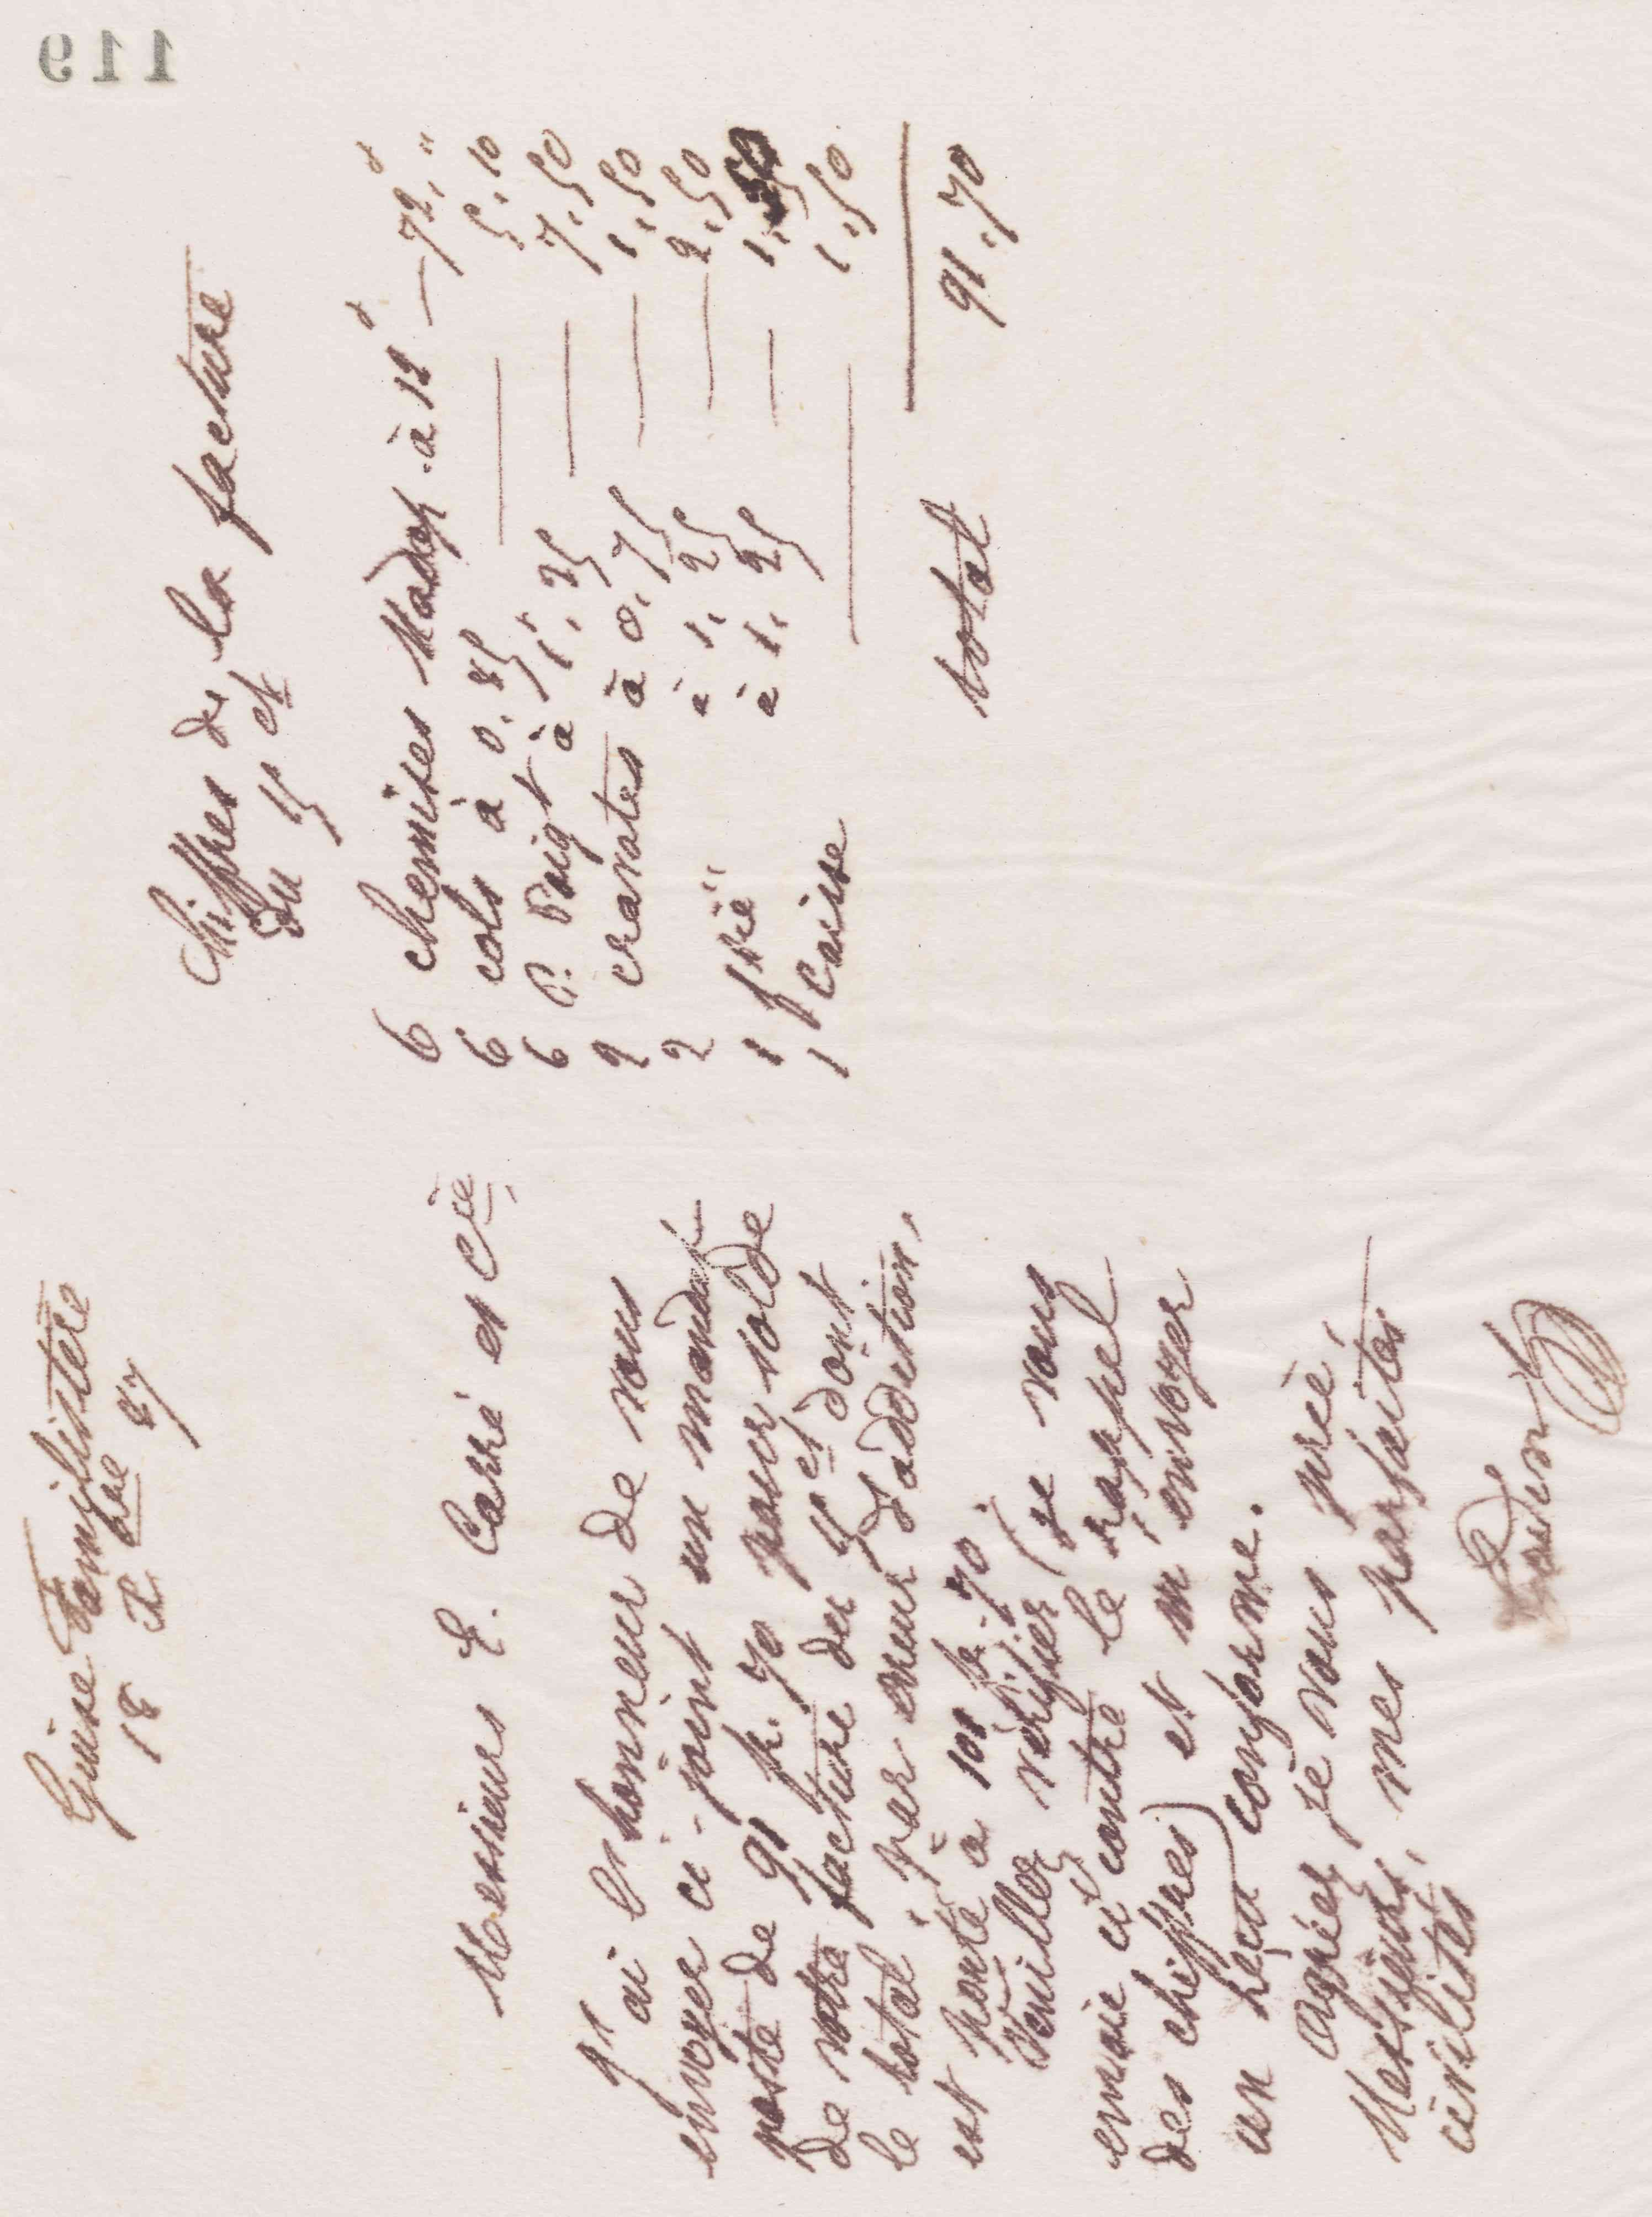 119
Guise Familistère
18 Xbre 87
Messieurs E. Carré et Cie,
J'ai l'honneur de vous
envoyer ci-joint un mandat
poste de 91 fr. 70 pour solde
de votre facture du 15 ct dont
le total, par erreur d'addition,
est porté à 101 fr. 70.
Veuillez vérifier (je vous
envoie ci contre le rappel
des chiffres) et m'envoyer
un reçu conforme.
Agréez, je vous prie,
Messieurs, mes parfaites
civilités
Godin
Chiffres de la facture
du 15 ct
6 chemises Madap. à 12f — 72, "
6 cols à 0.85 — 5.10
6 P. Poigt à 1f,25 — 7.50
2 cravates à 0,75 — 1,50
2 à 1,25 — 2,50
1 à 1,25 — 1,
1 Caisse — 1,50
total 91.70